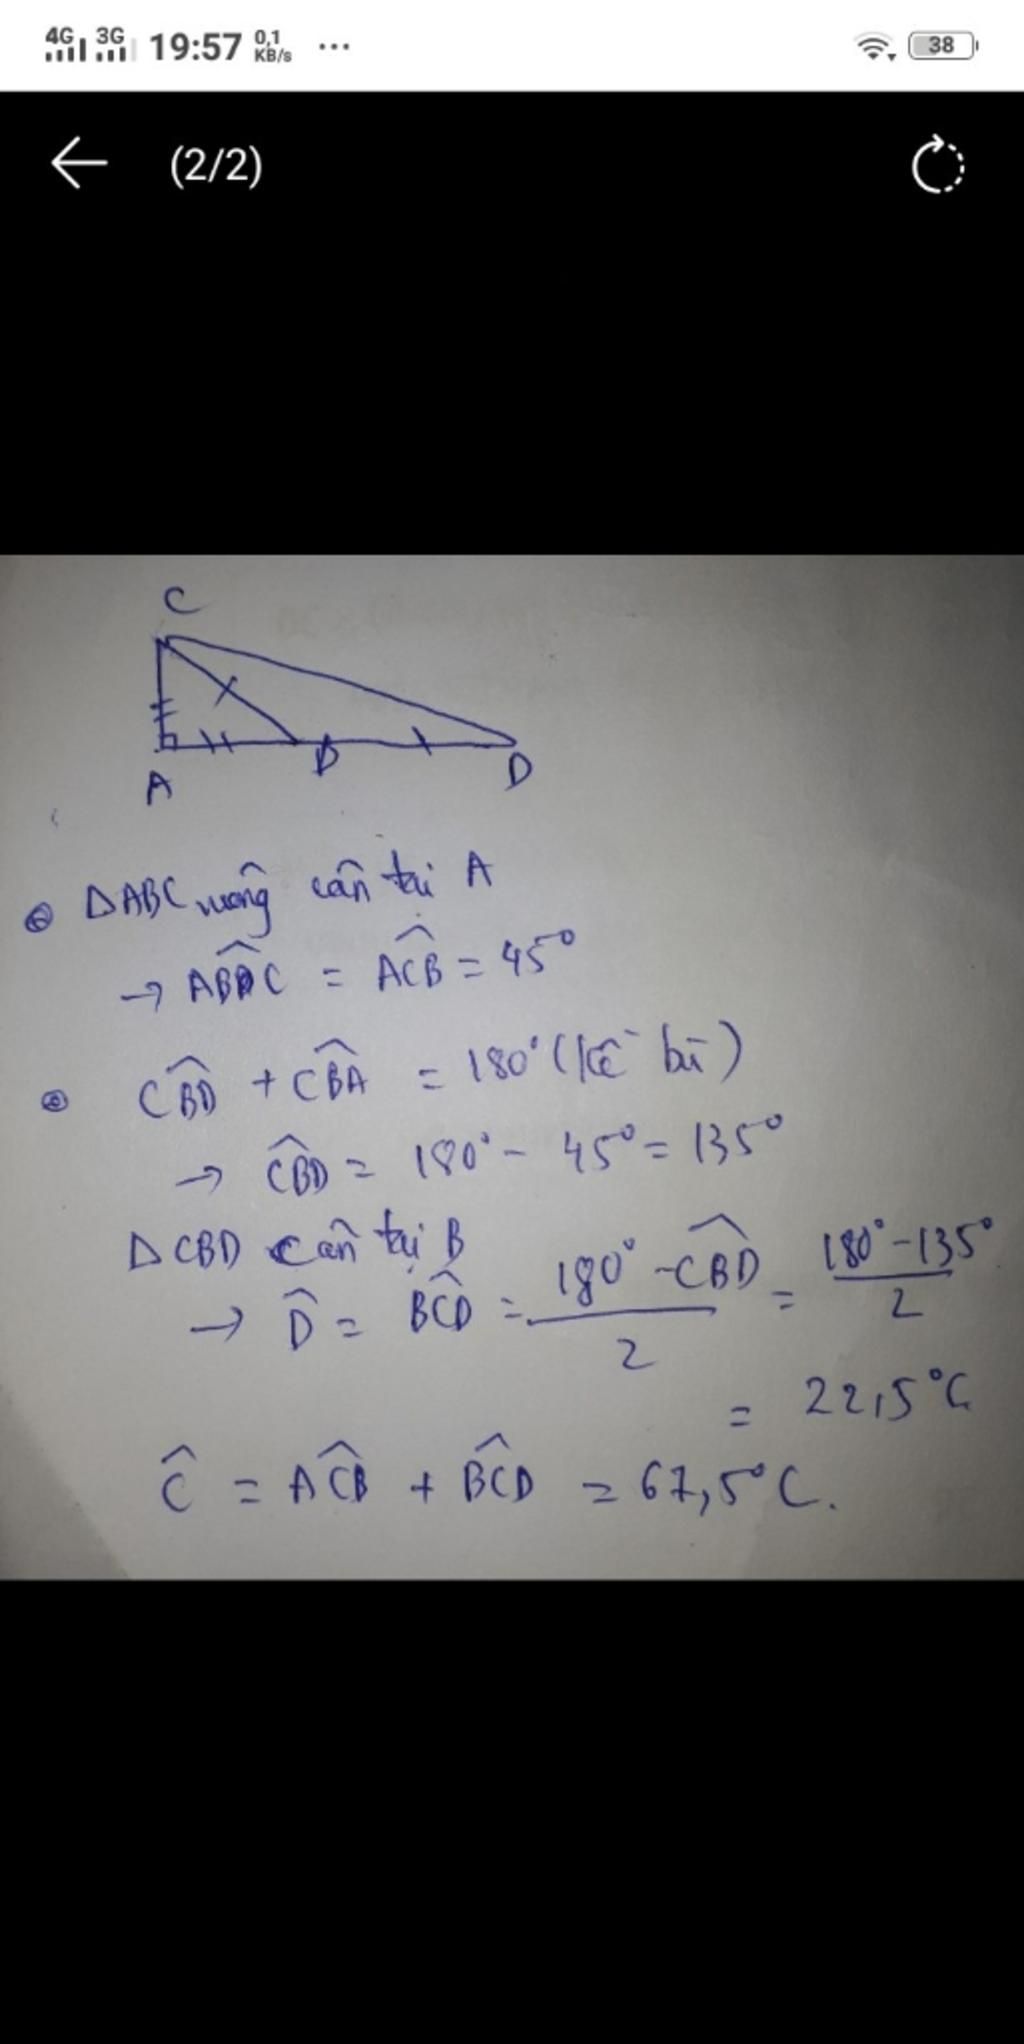 4G 3G 19:57 0,1 KB/s ... 38
(2/2)
C
A B D
ΔABC vuông cân tại A
→ ABC = ACB = 45°
CBD + CBA = 180° (kề bù)
→ CBD = 180° - 45° = 135°
ΔCBD cân tại B
→ D = BCD = (180° - CBD)/2 = (180° - 135°)/2
= 22,5°C
C = ACB + BCD = 67,5°C.